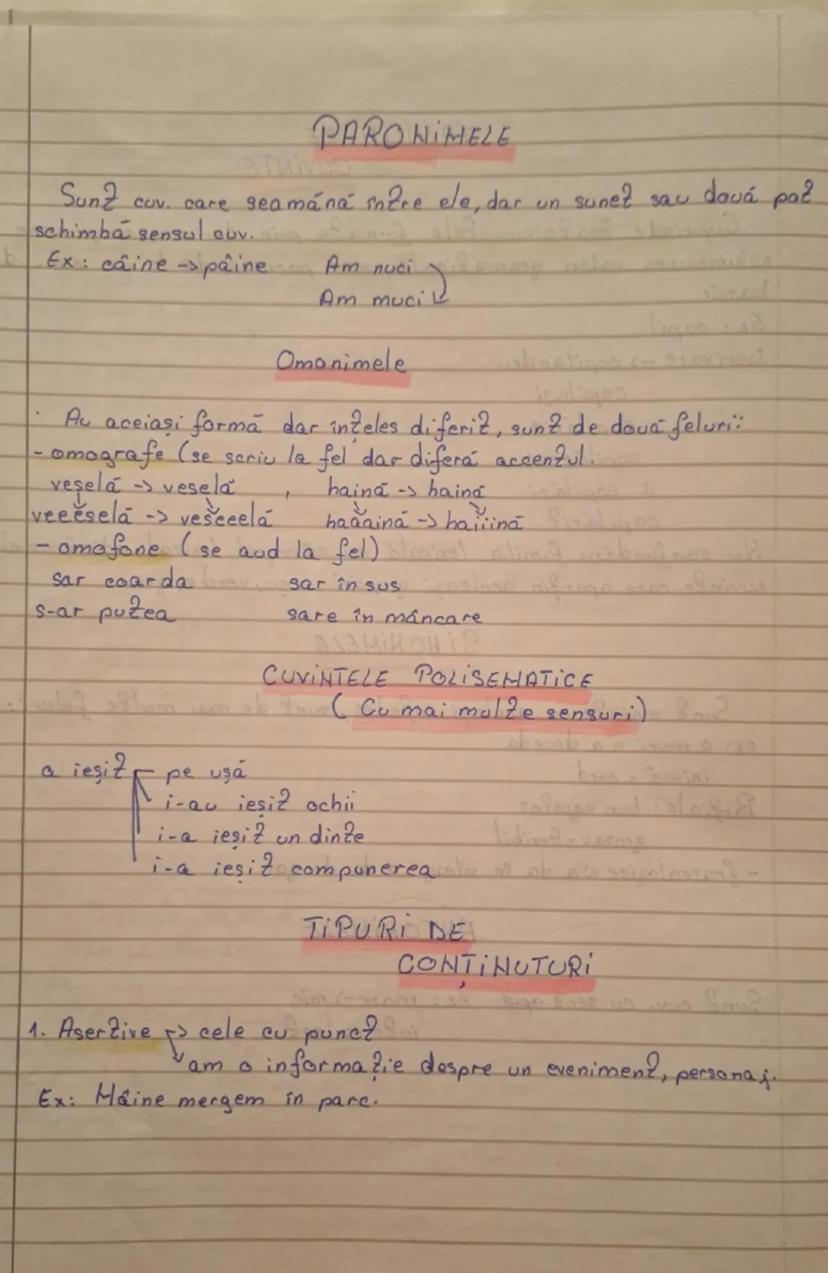 PARONIMELE
Sunt cuv. care seamănă între ele, dar un sunet sau două pot
schimbă sensul cuv.
Ex: câine -> pâine Am nuci
Am muci
Omonimele
Au aceiași formă dar înțeles diferit, sunt de două feluri:
- omografe (se scriu la fel dar diferă accentul.
veșelă -> veselă , haină -> haină
veeeselă -> veseeelă haaaină -> haiiină
- omofone (se aud la fel)
sar coarda sar în sus
s-ar putea sare în mâncare
CUVINTELE POLISEMATICE
(Cu mai multe sensuri)
a ieșit pe ușă
i-au ieșit ochii
i-a ieșit un dinte
i-a ieșit compunerea
TIPURI DE
CONȚINUTURI
1. Asertive -> cele cu punct
am o informație despre un eveniment, personaj.
Ex: Mâine mergem în parc.